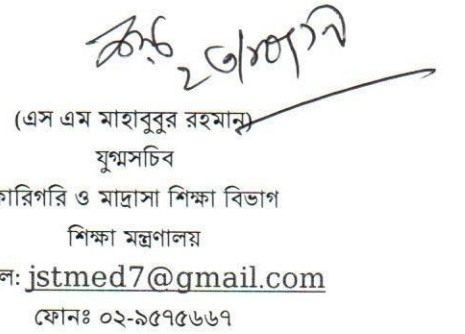 (এস এম মাহাবুবুর রহমান)
যুগ্মসচিব
কারিগরি ও মাদ্রাসা শিক্ষা বিভাগ
শিক্ষা মন্ত্রণালয়
ল: jstmed7@gmail.com
ফোনঃ ০২-৯৫৭৫৬৬৭